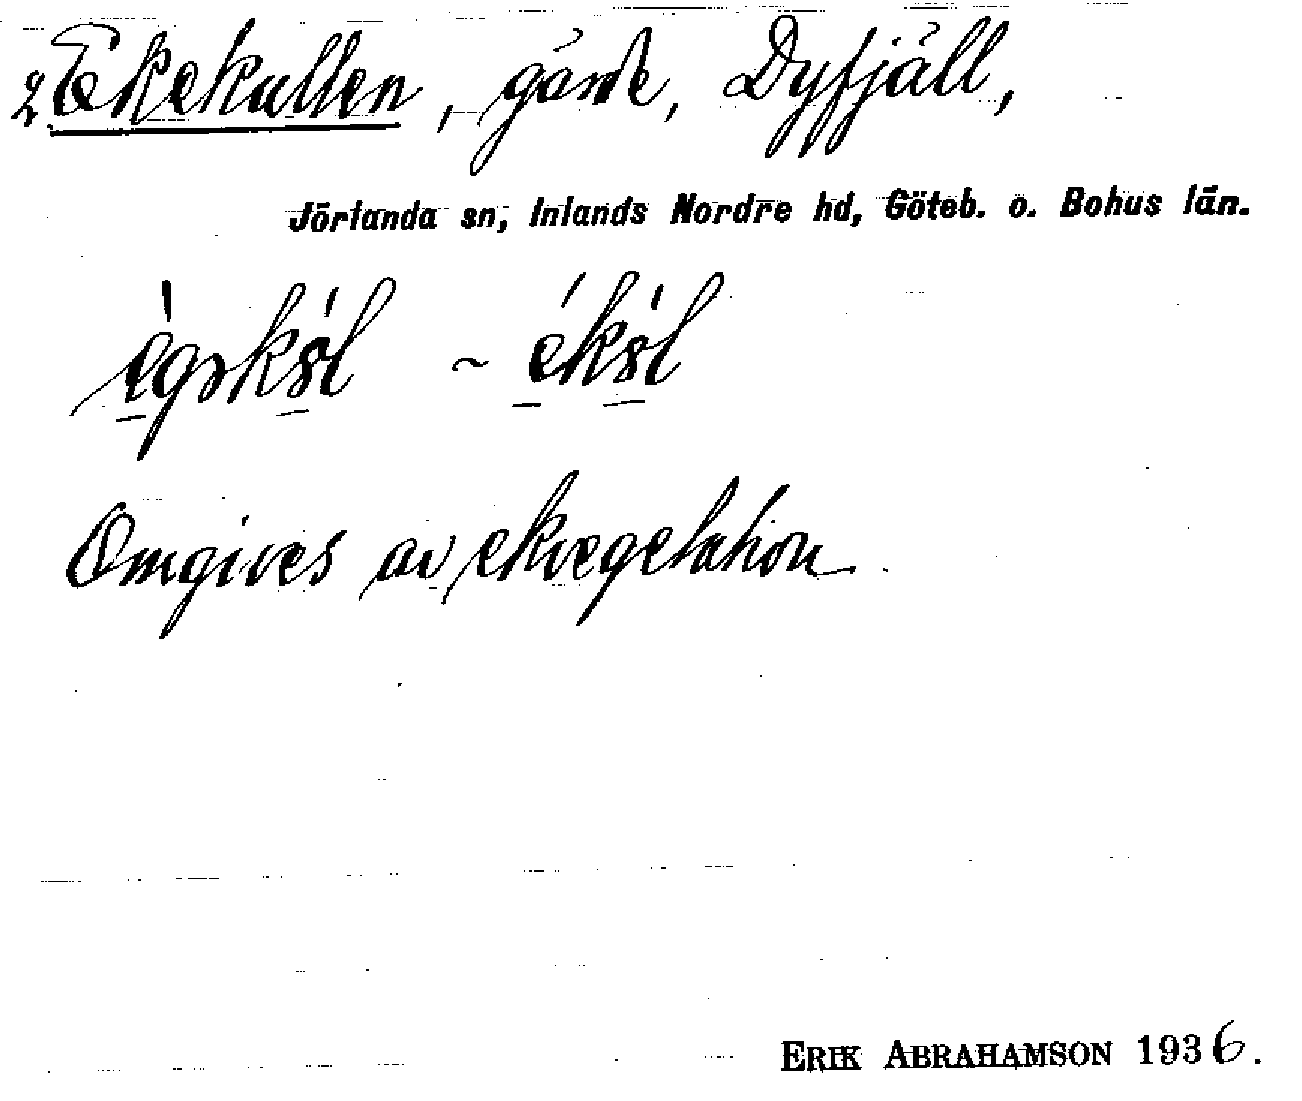 2 Ekekullen, gärde, Dyfjäll,
Jörlanda sn, Inlands Nordre hd, Göteb. o. Bohus län.
~
Omgives av ekvegetation.
ERIK ABRAHAMSON 1936.